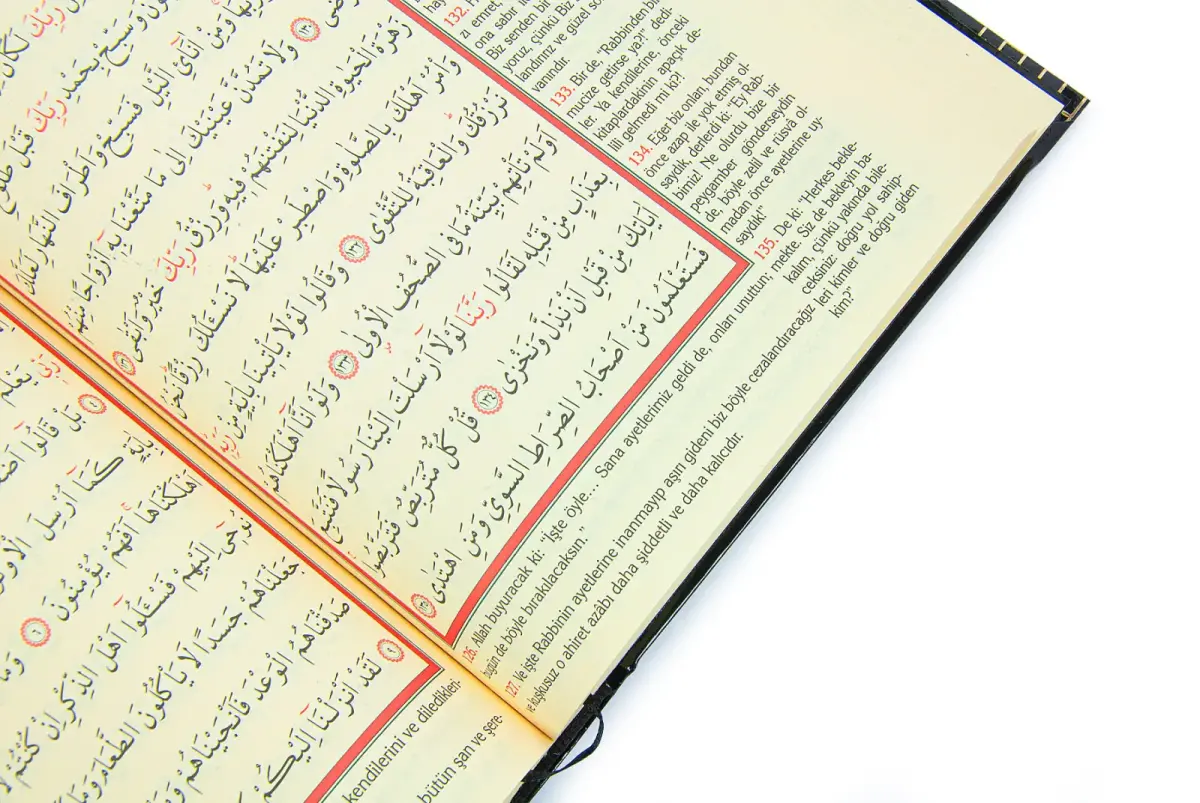 رَبِّكَ
وَسَبِّحْ بِحَمْدِ رَبِّكَ قَبْلَ طُلُوعِ
وَمِنْ اٰنَٓائِ الَّيْلِ فَسَبِّحْ وَاَطْرَافَ النَّهَارِ لَعَلَّكَ
١٣٠ وَلَا تَمُدَّنَّ عَيْنَيْكَ اِلٰى مَا مَتَّعْنَا بِه۪ٓ اَزْوَاجًا مِنْهُمْ
زَهْرَةَ الْحَيٰوةِ الدُّنْيَا لِنَفْتِنَهُمْ ف۪يهِ وَرِزْقُ رَبِّكَ خَيْرٌ وَاَبْقٰى ١٣١
وَأْمُرْ اَهْلَكَ بِالصَّلٰوةِ وَاصْطَبِرْ عَلَيْهَا لَا نَسْـَٔلُكَ رِزْقًا نَحْنُ
نَرْزُقُكَ وَالْعَاقِبَةُ لِلتَّقْوٰى ١٣٢ وَقَالُوا لَوْلَا يَأْت۪ينَا بِاٰيَةٍ مِنْ رَبِّه۪
اَوَلَمْ تَأْتِهِمْ بَيِّنَةُ مَا فِى الصُّحُفِ الْاُو۫لٰى ١٣٣ وَلَوْ اَنَّٓا اَهْلَكْنَاهُمْ
بِعَذَابٍ مِنْ قَبْلِه۪ لَقَالُوا رَبَّنَا لَوْلَٓا اَرْسَلْتَ اِلَيْنَا رَسُولًا فَنَتَّبِعَ
اٰيَاتِكَ مِنْ قَبْلِ اَنْ نَذِلَّ وَنَخْزٰى ١٣٤ قُلْ كُلٌّ مُتَرَبِّصٌ فَتَرَبَّصُوا
فَسَتَعْلَمُونَ مَنْ اَصْحَابُ الصِّرَاطِ السَّوِيِّ وَمَنِ اهْتَدٰى ١٣٥
132.
zı emret,
ona sabır
Biz senden bir
yoruz, çünkü Biz
landırırız ve güzel so-
vanındır.
133. Bir de, "Rabbinden bir
mucize getirse ya?!" dedi-
ler. Ya kendilerine, önceki
kitaplardakinin apaçık de-
lili gelmedi mi ki?!
134. Eğer biz onları, bundan
önce azap ile yok etmiş ol-
saydık, derlerdi ki: "Ey Rab-
bimiz! Ne olurdu bize bir
peygamber gönderseydin
de, böyle zelil ve rüsvâ ol-
madan önce ayetlerine uy-
saydık!"
135. De ki: "Herkes bekle-
mekte. Siz de bekleyin ba-
kalım, çünkü yakında bile-
ceksiniz: doğru yol sahip-
leri kimler ve doğru giden
kim?"
126. Allah buyuracak ki: "İşte öyle... Sana ayetlerimiz geldi de, onları unuttun;
bugün de böyle bırakılacaksın."
127. Ve işte Rabbinin ayetlerine inanmayıp aşırı gideni biz böyle cezalandıracağız
ve kuşkusuz o ahiret azâbı daha şiddetli ve daha kalıcıdır.
يَعْلَمُ
٤ بَلْ قَالُٓوا
بِاٰيَةٍ كَمَٓا اُرْسِلَ الْاَوَّلُونَ
اَهْلَكْنَاهَا اَفَهُمْ يُؤْمِنُونَ ٦ وَمَٓا
نُوح۪ٓى اِلَيْهِمْ فَسْـَٔلُٓوا اَهْلَ الذِّكْرِ اِنْ كُنْتُمْ لَا
جَعَلْنَاهُمْ جَسَدًا لَا يَأْكُلُونَ الطَّعَامَ وَمَا
صَدَقْنَاهُمُ الْوَعْدَ فَاَنْجَيْنَاهُمْ
٩ لَقَدْ اَنْزَلْنَٓا اِلَيْكُمْ
kendilerini ve diledikleri-
bütün şan ve şere-